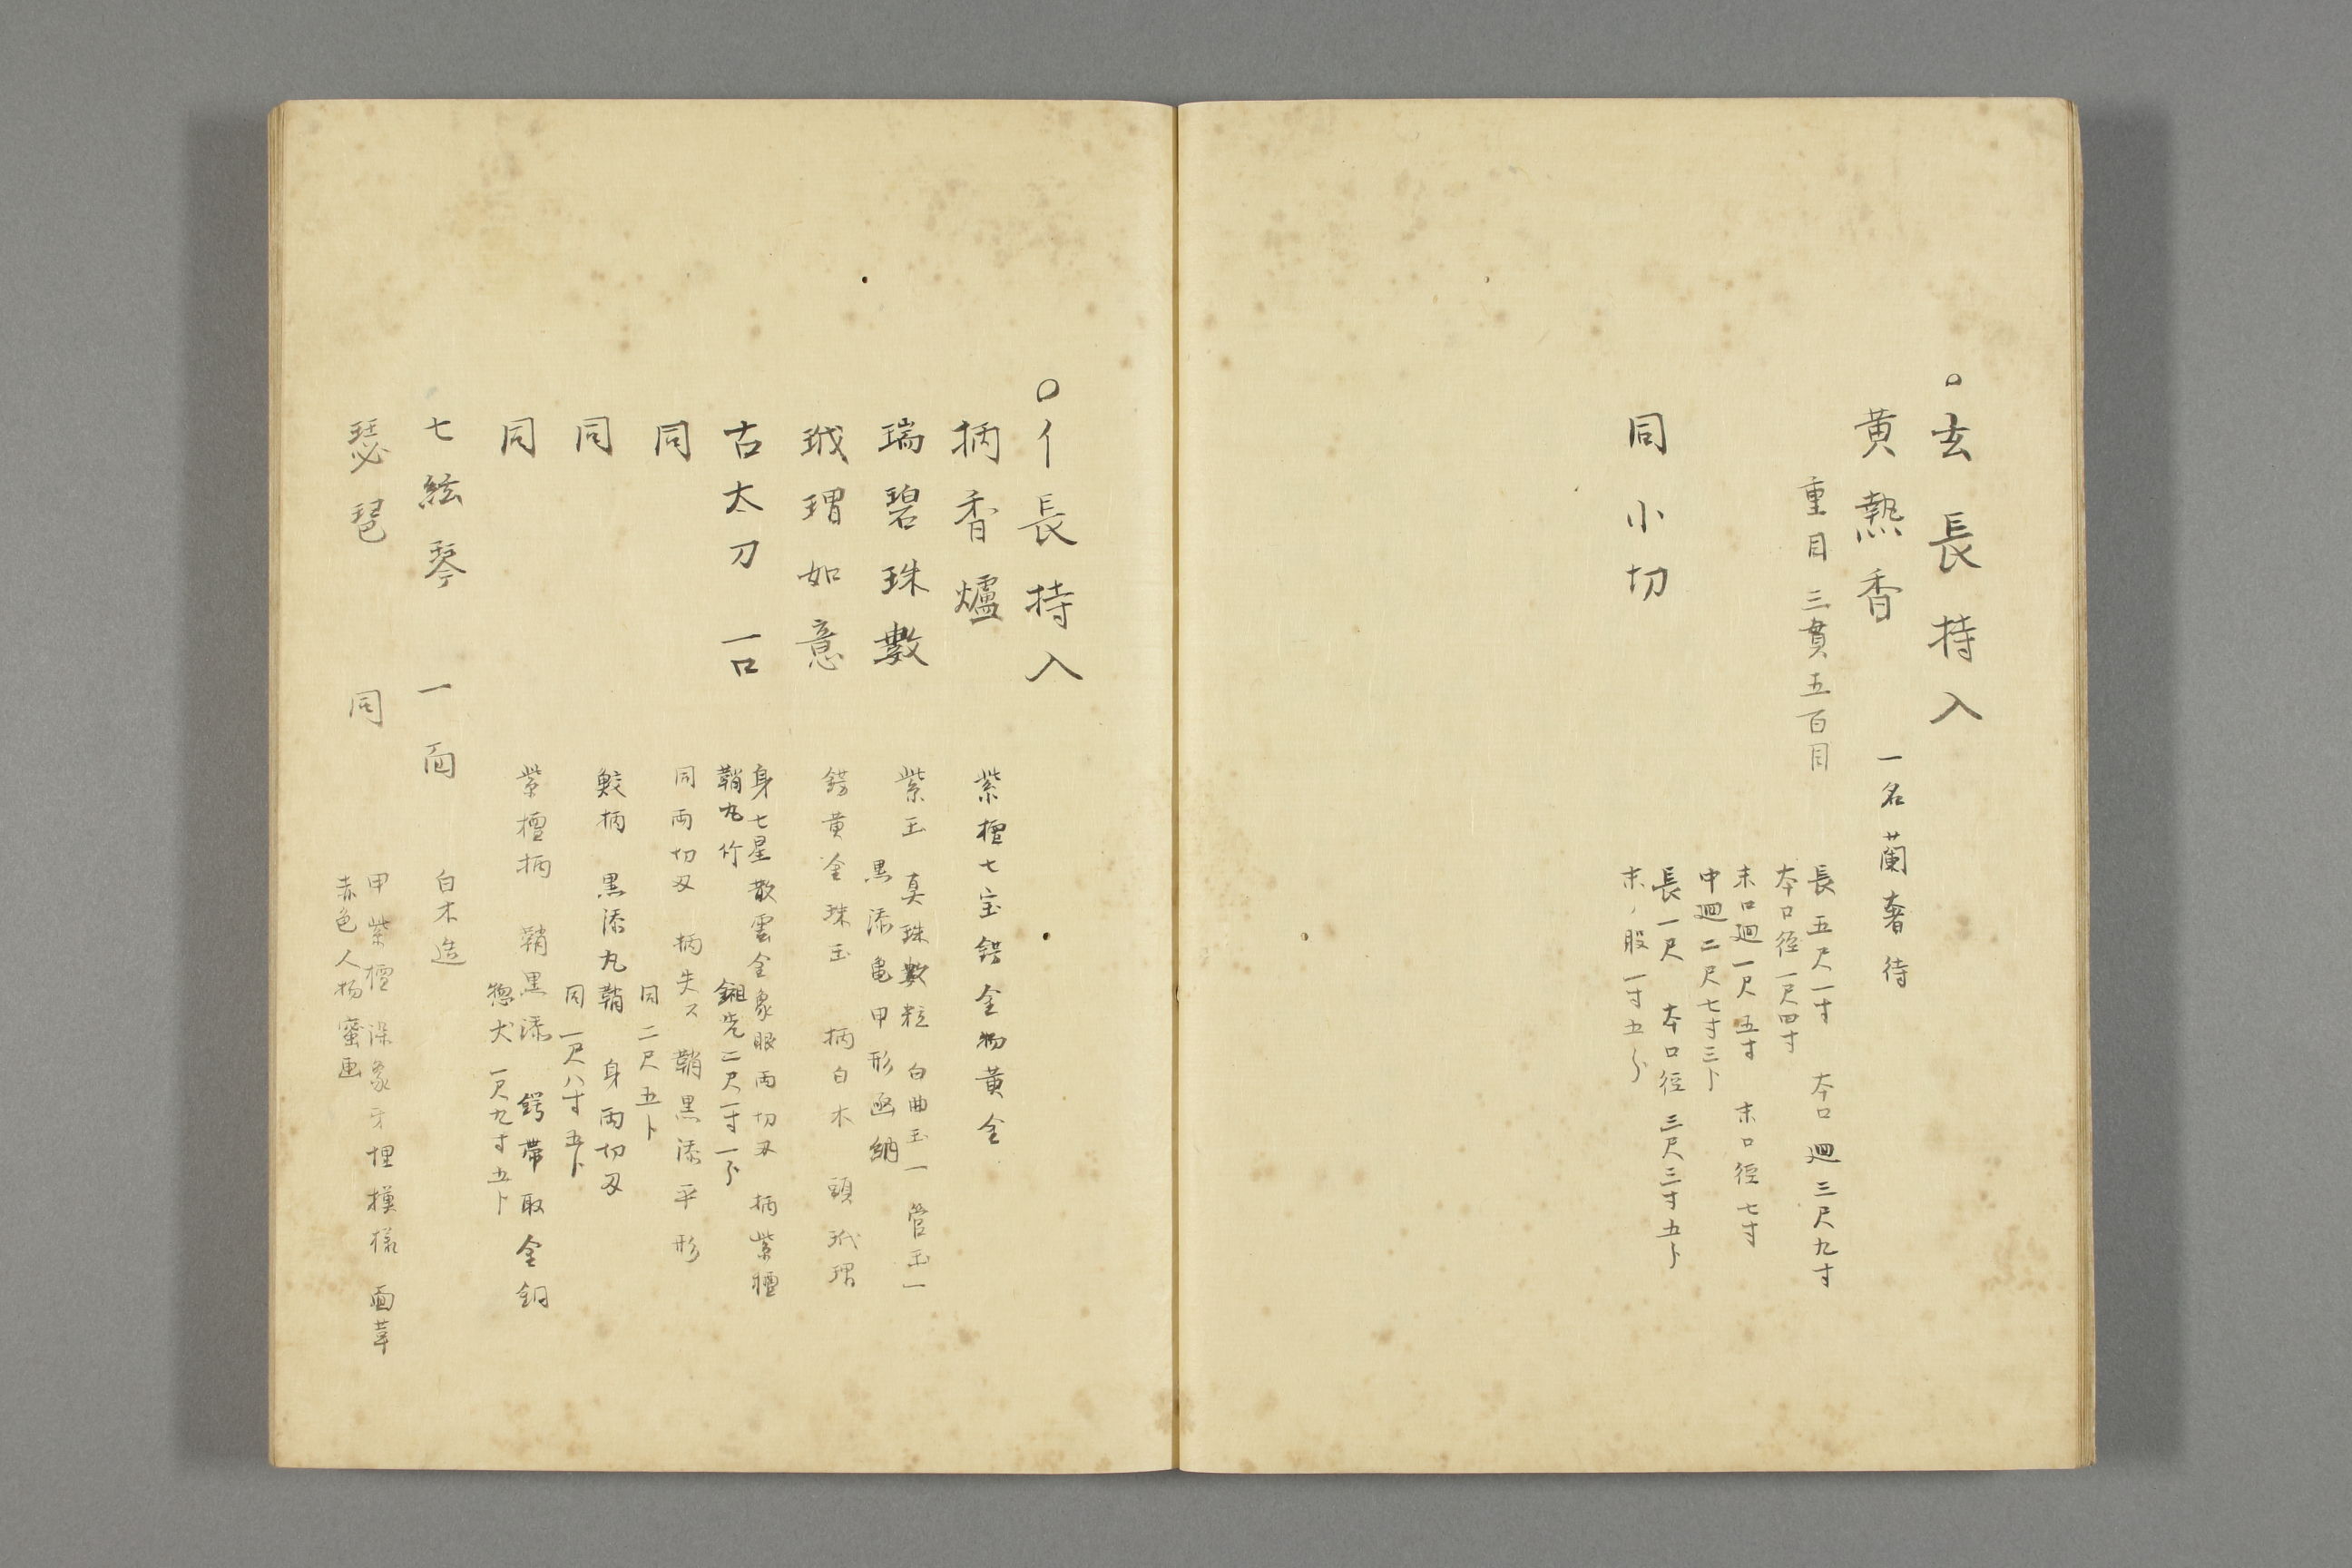 ○玄長持入
黄熱香
一名蘭奢待
重目三貫五百目
長五尺一寸 本口廻三尺九寸
本口径一尺四寸
末口廻一尺五寸 末口径七寸
中廻二尺七寸三卜
同小切
長一尺 本口径三尺三寸五卜
末ノ股一寸五分
○イ長持入
柄香爐
紫檀七宝鈬金物黄金
瑞碧珠數
紫玉 真珠數粒 白曲玉一 管玉一
黒漆亀甲形函納
玳瑁如意
鈬黄金珠玉 柄白木 頭玳瑁
古太刀 一口
身七星散雲金象眼両切刄 柄紫檀
鞘丸竹
鉏先二尺一寸一分
同
同両切刄 柄失ス 鞘黒漆平形
同二尺五卜
同
鮫柄 黒漆丸鞘 身両切刄
同一尺八寸五卜
同
紫檀柄 鞘黒漆 鍔帶取金銅
惣丈一尺九寸五卜
七絃琴 一面
白木造
琵琶 同
甲紫檀染象牙埋模様 面革
赤色人物蜜画